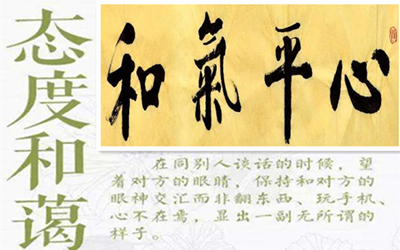 态度和蔼
和氣平心
在同别人谈话的时候，望
着对方的眼睛，保持和对方的
眼神交汇而非翻东西、玩手机、
心不在焉，显出一副无所谓的
样子。